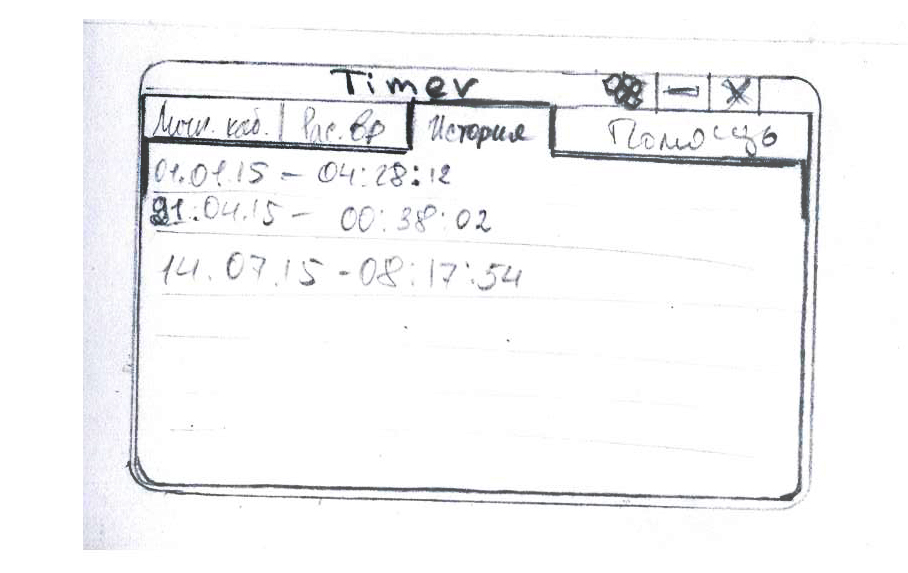 Timer
Личн. каб. Рас. вр История Помощь
01.01.15 - 04:28:12
21.04.15 - 00:38:02
14.07.15 - 08:17:54